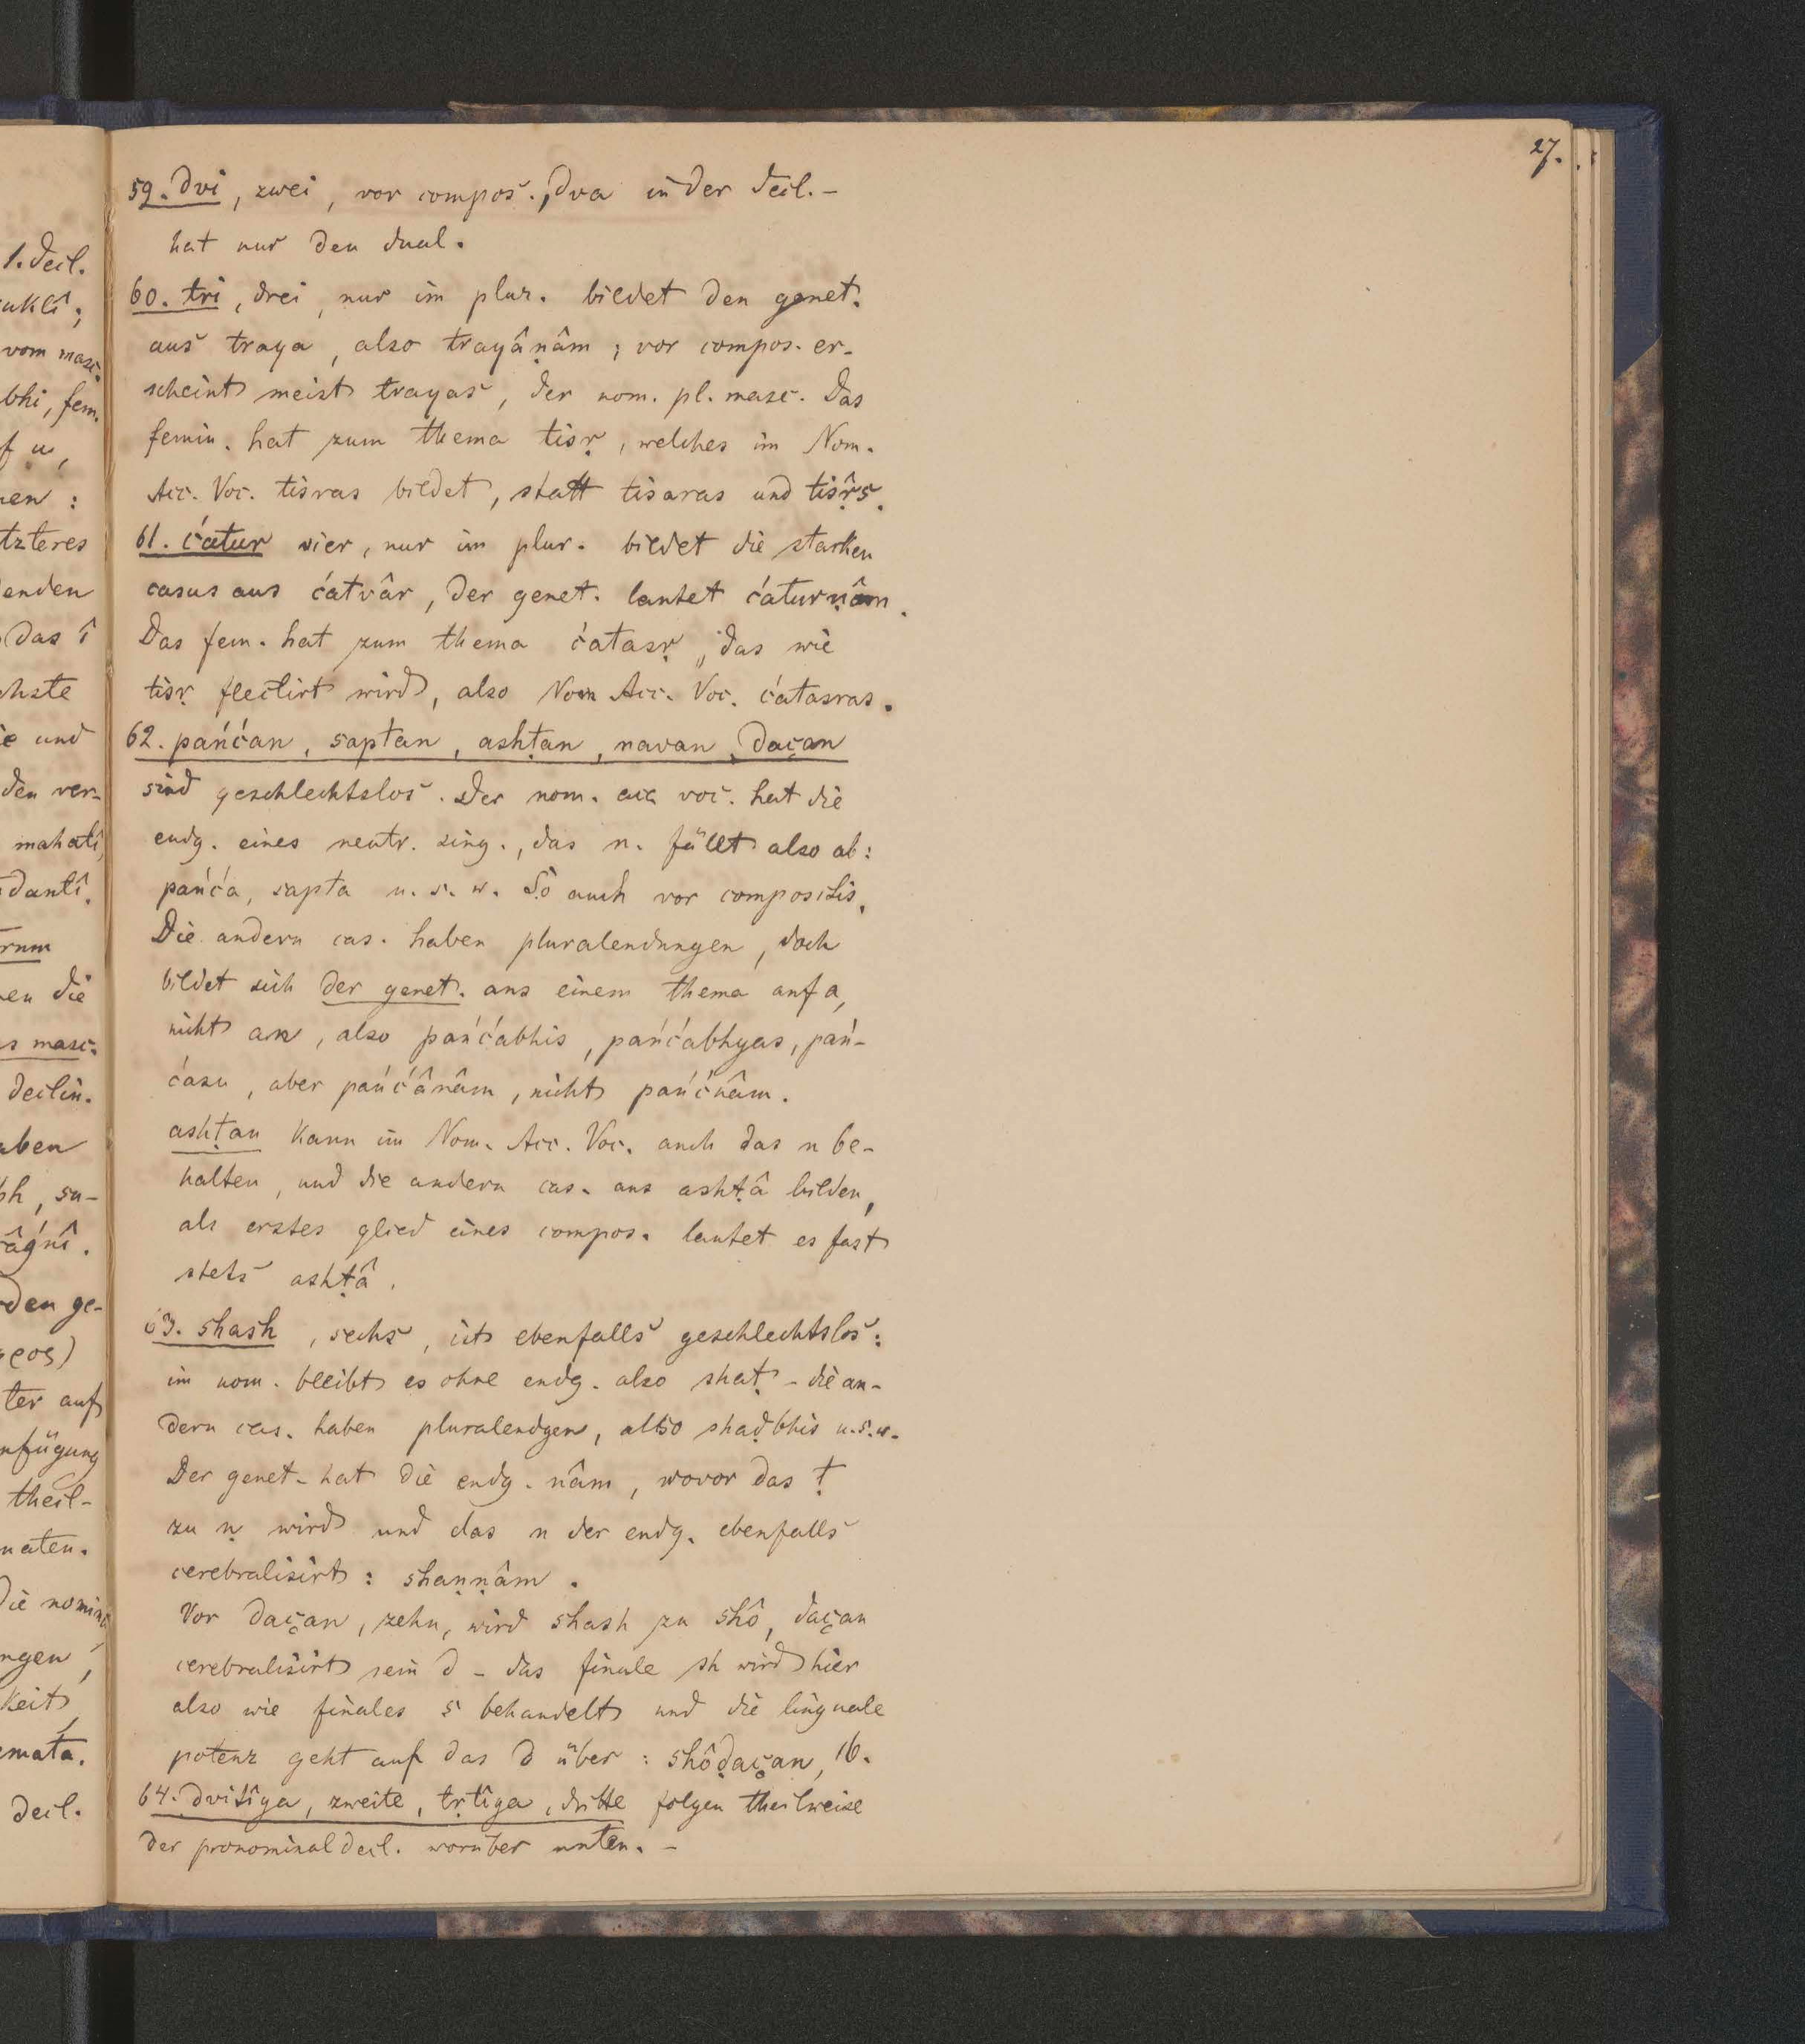 27.
59. dvi, zwei, vor compos., dva in der decl. –
hat nur den dual.
60. tri, drei, nur im plur. bildet den genet.
aus traya, also trayâṇâm; vor compos. er-
scheint meist trayas, der nom. pl. masc. Das
femin. hat zum thema tisṛ, welches im Nom.
Acc. Voc. tisras bildet, statt tisaras und tisṛ̂s.
61. ćatur vier, nur im plur. bildet die starken
casus aus ćatvâr, der genet. lautet ćaturṇâm.
Das fem. hat zum thema ćatasṛ, das wie
tisṛ flectirt wird, also Nom Acc. Voc. ćatasras.
62. pańćan, saptan, ashṭan, navan, daçan
sind geschlechtslos. Der nom. acc voc. hat die
endg. eines neutr. sing., das n. fällt also ab:
pańća, sapta u. s. w. So auch vor compositis.
Die andern cas. haben pluralendungen, doch
bildet sich der genet. aus einem thema auf a,
nicht an, also pańćabhis, pańćabhyas, pań-
ćasu, aber pańćânâm, nicht pańćnâm.
ashṭan kann im Nom. Acc. Voc. auch das n be-
halten, und die andern cas. aus ashṭâ bilden,
als erstes glied eines compos. lautet es fast
stets ashṭâ.
63. shash, sechs, ist ebenfalls geschlechtslos:
im nom. bleibt es ohne endg. also shaṭ – die an-
dern cas. haben pluralendgen, also shaḍbhis u.s.w.
Der genet. hat die endg. nâm, wovor das ṭ
zu ṇ wird und das n der endg. ebenfalls
cerebralisirt: shaṇṇâm.
Vor daçan, zehn, wird shash zu shô, daçan
cerebralisirt sein d – das finale sh wird hier
also wie finales s behandelt und die linguale
potenz geht auf das d über: shôḍaçan, 16.
64. dvitîya, zweite, tṛtîya, dritte folgen theilweise
der pronominaldecl. worüber unten. –
1. decl.
uklî;
vom masc.
bhi, fem.
f u,
nen :
tzteres
enden
das î
chste
ie und
den ver-
mahatî,
danti.
rum
en die
s masc.
declin.
aben
ph, su-
râǵńî.
den ge-
ρεος)
ter auf
nfügung
theil-
naten.
Die nomina
ngen,
keit,
emata.
decl.